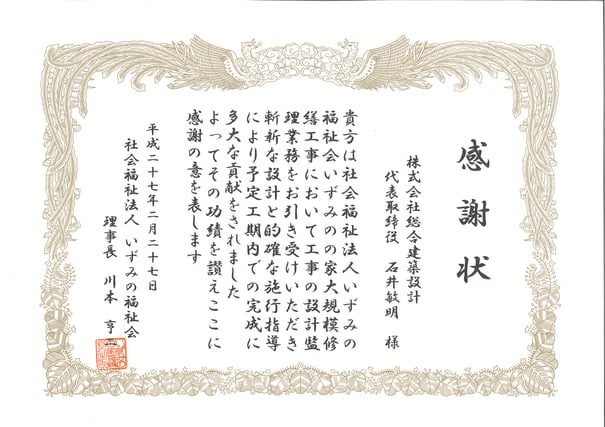 感謝状
株式会社総合建築設計
代表取締役 石井敏明 様
貴方は社会福祉法人いずみの
福祉会いずみのの家大規模修
繕工事において工事の設計監
理業務をお引き受けいただき
斬新な設計と的確な施行指導
により予定工期内での完成に
多大な貢献をされました
よってその功績を讃えここに
感謝の意を表します
平成二十七年二月二十七日
社会福祉法人 いずみの福祉会
理事長 川本 亨